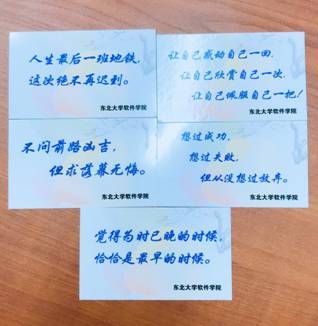 人生最后一班地铁，
这次绝不再迟到。
东北大学软件学院
让自己感动自己一回，
让自己欣赏自己一次，
让自己佩服自己一把！
东北大学软件学院
不问前路凶吉，
但求落幕无悔。
东北大学软件学院
想过成功，
想过失败，
但从没想过放弃。
东北大学软件学院
觉得为时已晚的时候，
恰恰是最早的时候。
东北大学软件学院